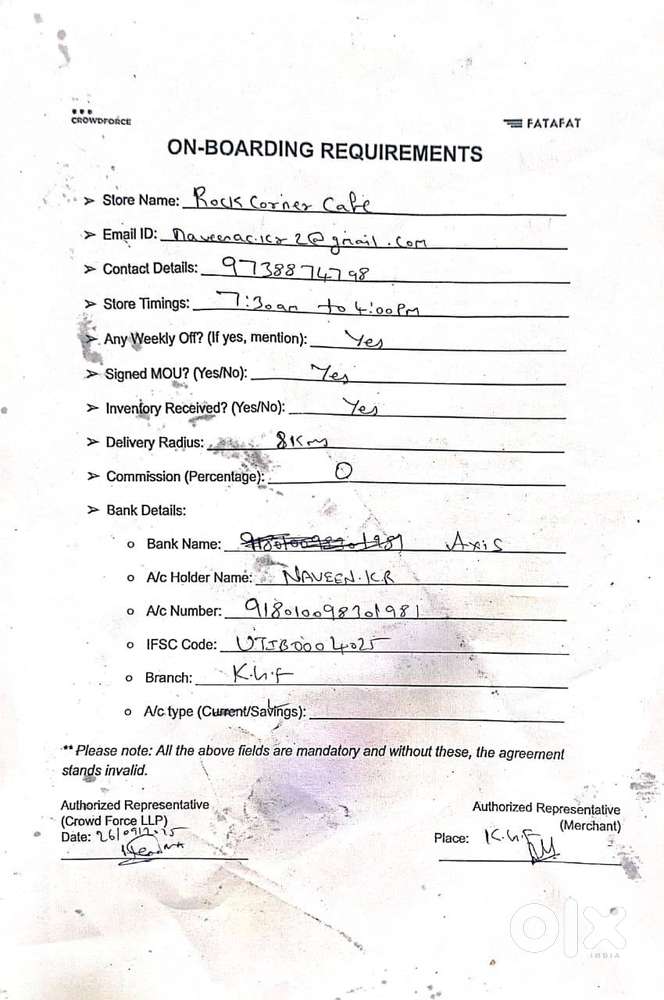 CROWDFORCE
FATAFAT
ON-BOARDING REQUIREMENTS
➢ Store Name: Rock Corner Cafe
➢ Email ID: naveenac.kr2@gmail.com
➢ Contact Details: 9738874798
➢ Store Timings: 7:30am to 4:00PM
➢ Any Weekly Off? (If yes, mention): Yes
➢ Signed MOU? (Yes/No): Yes
➢ Inventory Received? (Yes/No): Yes
➢ Delivery Radius: 8Kms
➢ Commission (Percentage): 0
➢ Bank Details:
o Bank Name: Axis
o A/c Holder Name: NAVEEN.K.R
o A/c Number: 918010098701981
o IFSC Code: UTIB0004025
o Branch: K.G.F
o A/c type (Current/Savings):
** Please note: All the above fields are mandatory and without these, the agreement
stands invalid.
Authorized Representative
(Crowd Force LLP)
Date: 26/09/2025
Authorized Representative
(Merchant)
Place: K.G.F
olx
INDIA